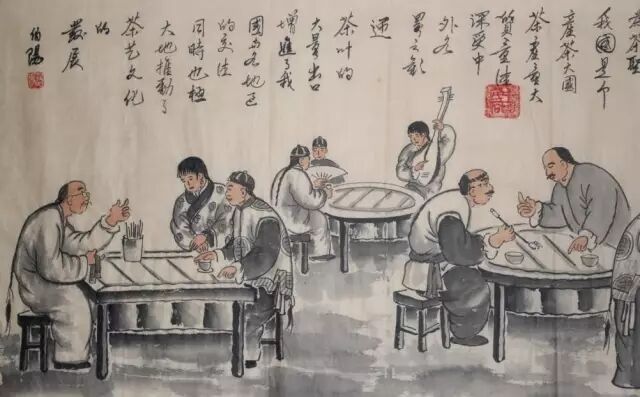 茶聚
我國是个
産茶大國
茶産量大
質量佳
深受中
外各
界歡
迎
茶叶的
大量出口
增進了我
國与各地区
的交往
同時也極
大地推動了
茶艺文化
的
發展
伯陽